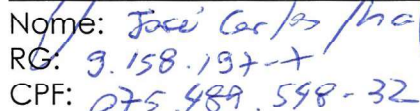 Nome: José Carlos
RG: 9.158.197-7
CPF: 075.489.598-32